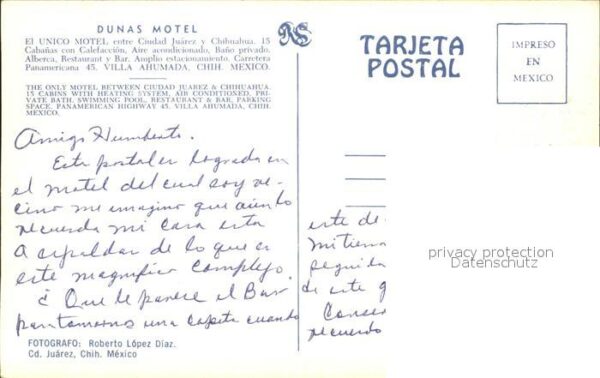 DUNAS MOTEL
El UNICO MOTEL entre Ciudad Juárez y Chihuahua. 15
Cabañas con Calefacción, Aire acondicionado, Baño privado,
Alberca, Restaurant y Bar. Amplio estacionamiento. Carretera
Panamericana 45. VILLA AHUMADA, CHIH. MEXICO.
THE ONLY MOTEL BETWEEN CIUDAD JUAREZ & CHIHUAHUA.
15 CABINS WITH HEATING SYSTEM, AIR CONDITIONED, PRI-
VATE BATH, SWIMMING POOL, RESTAURANT & BAR, PARKING
SPACE. PANAMERICAN HIGHWAY 45. VILLA AHUMADA, CHIH.
MEXICO.
TARJETA
POSTAL
IMPRESO
EN
MEXICO
Amigo Humberto.
Esta postal es lograda en
el motel del cual soy ve-
cino me imagino que
recuerda mi casa esta
A espaldas de lo que es
este magnifico complejo.
¿ Que le parece el Bar
para tomarnos una copita cuando
este de
mi tierra
seguida
de este g
Conser
recuerdo
privacy protection
Datenschutz
FOTOGRAFO: Roberto López Díaz.
Cd. Juárez, Chih. México